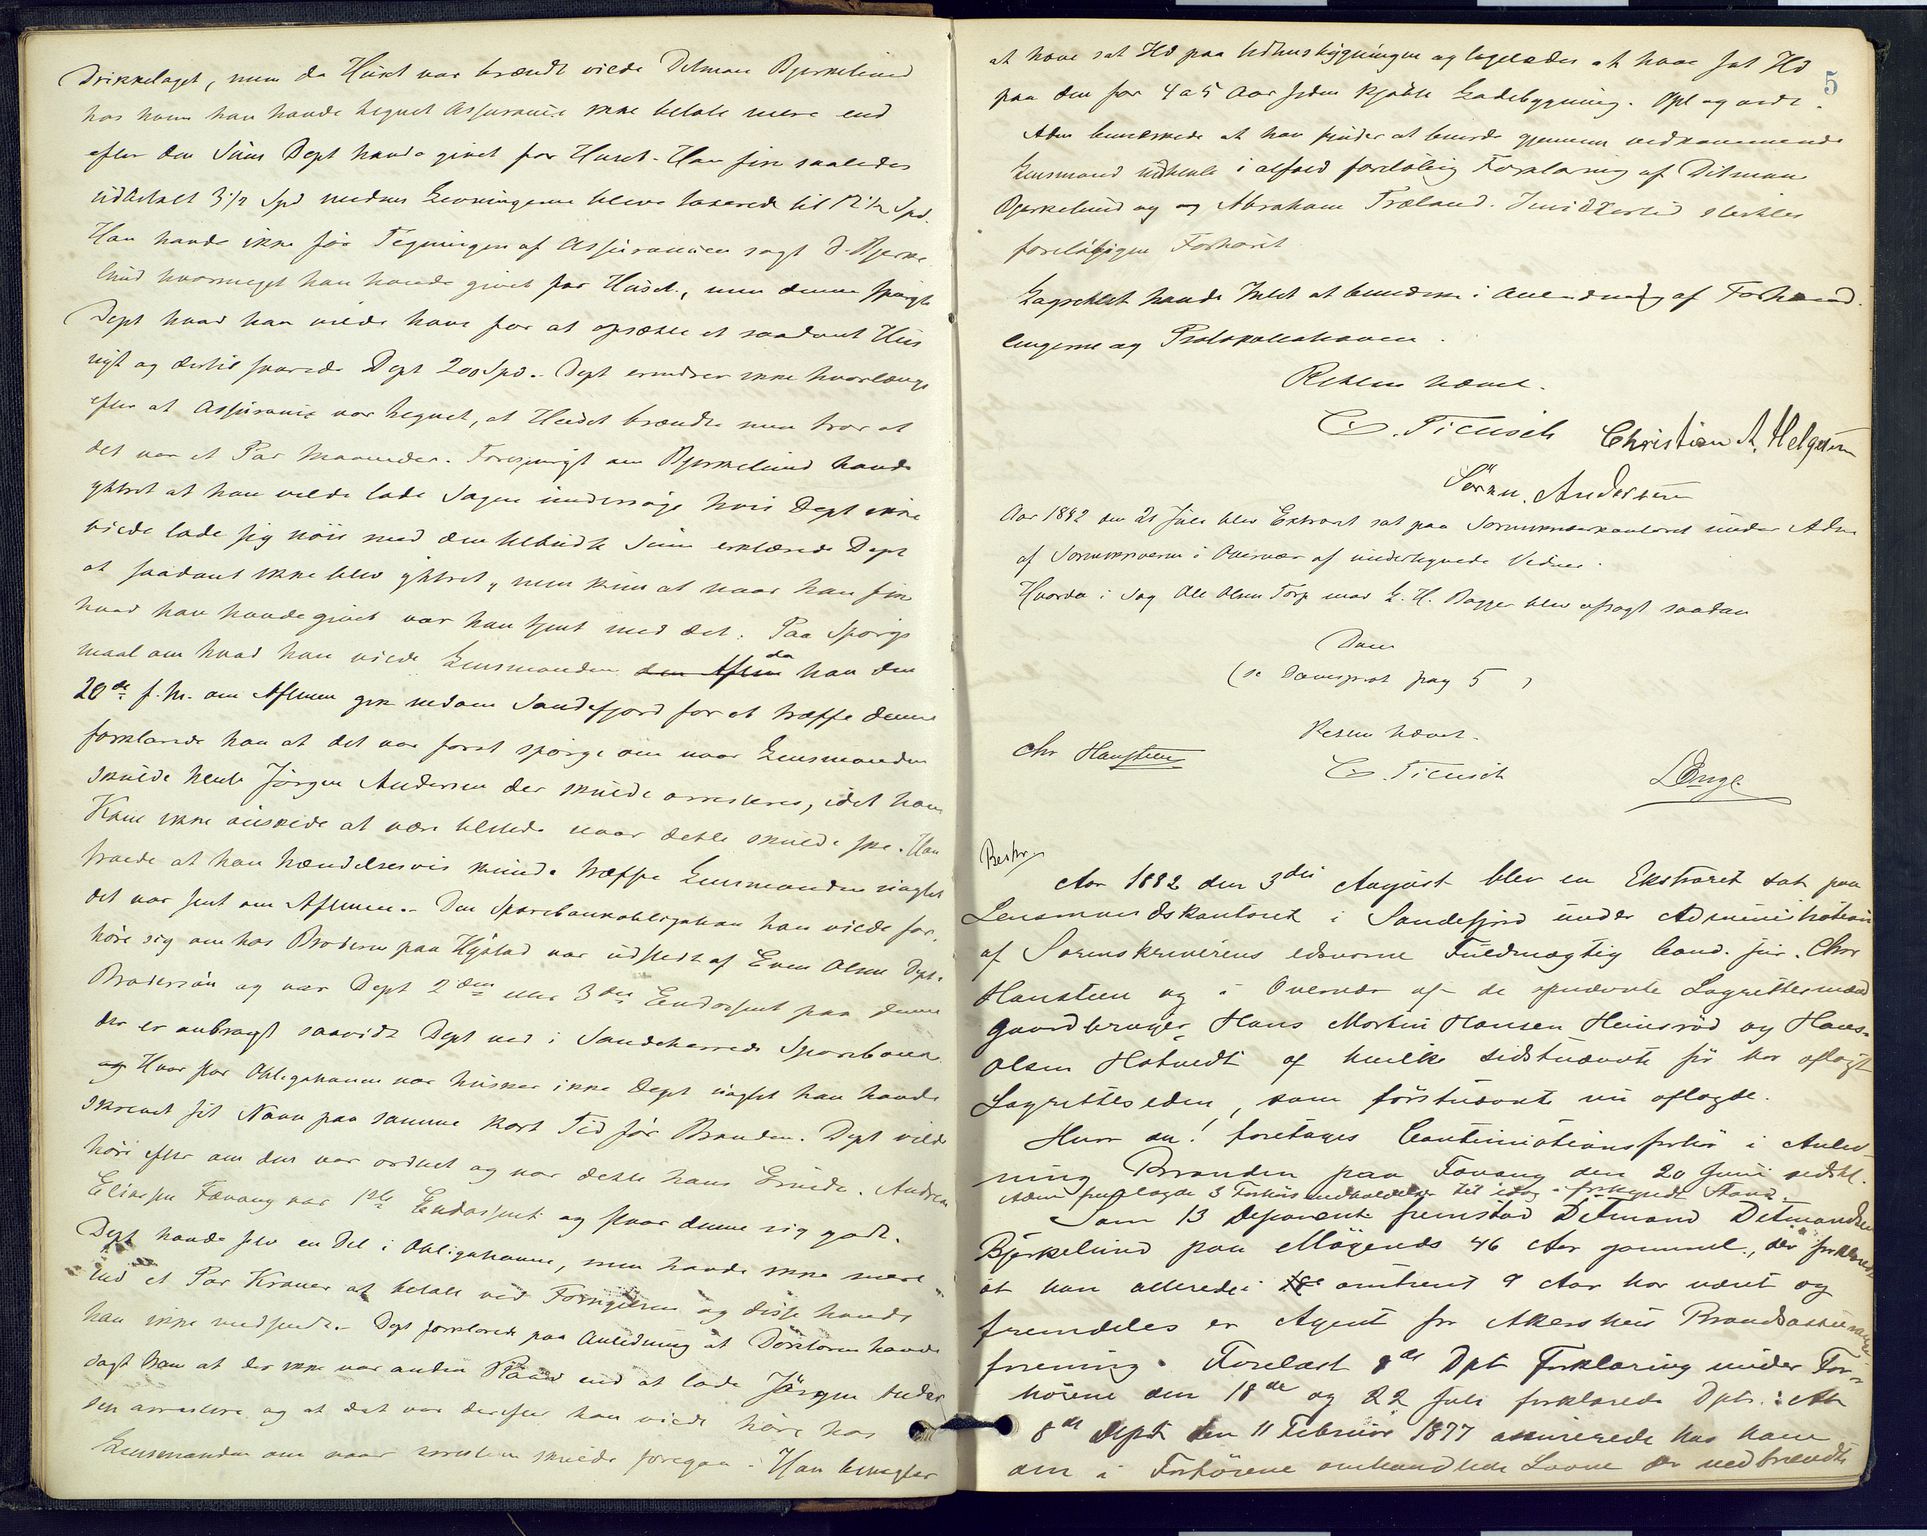 Drikkelaget, men da Huset var brændt vilde Ditman Bjerkelund
hos ham han havde tegnet Assurance ikke betale mere end
efter den Sum Dept havde givet for Huset. Han fik saaledes
udbetalt 3 1/2 Spd medens Levningerne bleve taxerede til 12 1/2 Spd.
Han havde ikke før Tegningen af Assurancen sagt D. Bjerke
lund hvormeget han havde givet for Huset, men denne spurgte
Dept hvad han vilde have for at opsætte et saadant Hus
nyt og dertil svarede Dept 200 Spd. Dept erindrer ikke hvorlænge
efter at Assurance var tegnet, at Huset brændte men tror at
det var et Par Maaneder. Forespurgt om Bjerkelund havde
yttret at han vilde lade Sagen undersøge hvis Dept ikke
vilde lade sig nøie med den tilbudte Sum erklærede Dept
at saadant ikke blev yttret, men kun at naar han fik
hvad han havde givet var han tjent med det. Paa Spørgs
maal om hvad han vilde Lensmanden den Aften da han den
20de f. M. om Aftenen gik nedom Sandefjord for at træffe denne
forklarede han at det var først spørge om naar Lensmanden
skulde hente Jørgen Andersen der skulde arresteres, idet hans
Kone ikke ønskede at være tilstede naar dette skulde ske. Han
troede at han hændelsesvis kunde træffe Lensmanden uagtet
det var sent om Aftenen. Den Sparebankobligation han vilde for,
høre sig om hos Broderen paa Hystad var udstedt af Even Olsen Depts
Brodersøn og var Dept 2den eller 3die Endossent paa denne
der er anbragt saavidt Dept ved i Sandeherreds Sparebank
og Hvor stor Obligationen var husker ikke Dept uagtet han havde
skrevet sit Navn paa samme kort Tid før Branden. Dept vilde
høre efter om den var ordnet og var dette hans Ærinde. Andreas
Eliassen Fævang var 1ste Endossent og staar denne sig godt.
Dept havde selv en Del i Obligationen, men havde ikke mere
end et Par Kroner at betale ved Fornyelsen og disse havde
han ikke medsendt. Dept forklarede paa Anledning at Doktoren havde
sagt ham at der ikke var anden Raad end at lade Jørgen Ander
sen arrestere og at det var derefter han vilde høre hos
Lensmanden om naar arresten skulde foregaa. Han benegter
5
at have sat Ild paa Udhusbygningen og ligeledes at have sat Ild
paa den for 4 a 5 Aar siden kjøbte Ladebygning. Opl og vedt.
Adm bemærkede at han finder at burde gjennem vedkommende
Lensmand indhente i alfald foreløbig Forklaring af Ditman
Bjerkelund og og Abraham Træland. Imidlertid sluttes
foreløbigen Forhøret.
Lagrettet havde Intet at bemærke i Anledning af Forhand
lingerne og Protokollationen.
Retten hævet.
C. Fiensch Christian A. Helgesen
Søren Andersen
Aar 1882 den 21 Juli blev Extraret sat paa Sorenskriverkontoret under Adm
af Sorenskriveren i Overvær af undertegnede Vidner.
Hvorda i Sag Ole Olsen Torp mod L. H. Bagger blev afsagt saadan
Dom
(se Domsprot pag 5)
Retten hævet.
Chr Hansteen C. Fiensch LEnge
Beskr
Aar 1882 den 3die August blev en Ekstraret sat paa
Lensmandskontoret i Sandefjord under Administration
af Sorenskriverens edsvorne Fuldmægtig Cand. jur. Chr
Hansteen og i Overvær af de opnævnte Lagrettesmænd
Gaardbruger Hans Martin Hansen Heimsrød og Hans
Olsen Hotvedt af hvilke sidstnævnte før har aflagt
Lagretteseden, som førstnævnte nu aflagde.
Hvor da: foretages Continuationsforhør i Anled
ning Branden paa Fævang den 20 Juni sidstl.
Adm fremlagde 3 Forhørsindkaldelser til idag i forkyndt Stand.
Som 13 Deponent fremstod Ditmand Ditmandsen
Bjerkelund paa Møgenes 46 Aar gammel, der forklarede
at han allerede i omtrent 9 Aar har været og
fremdeles er Agent for Akershus Brandassurance
forening. Forelæst 8de Dpt Forklaring under For-
hørene den 18de og 22 Juli forklarede Dpts: At
8de Dept den 11 Februar 1877 assurerede hos ham
om i Forhørene omhandlede Laave er nedbrændt